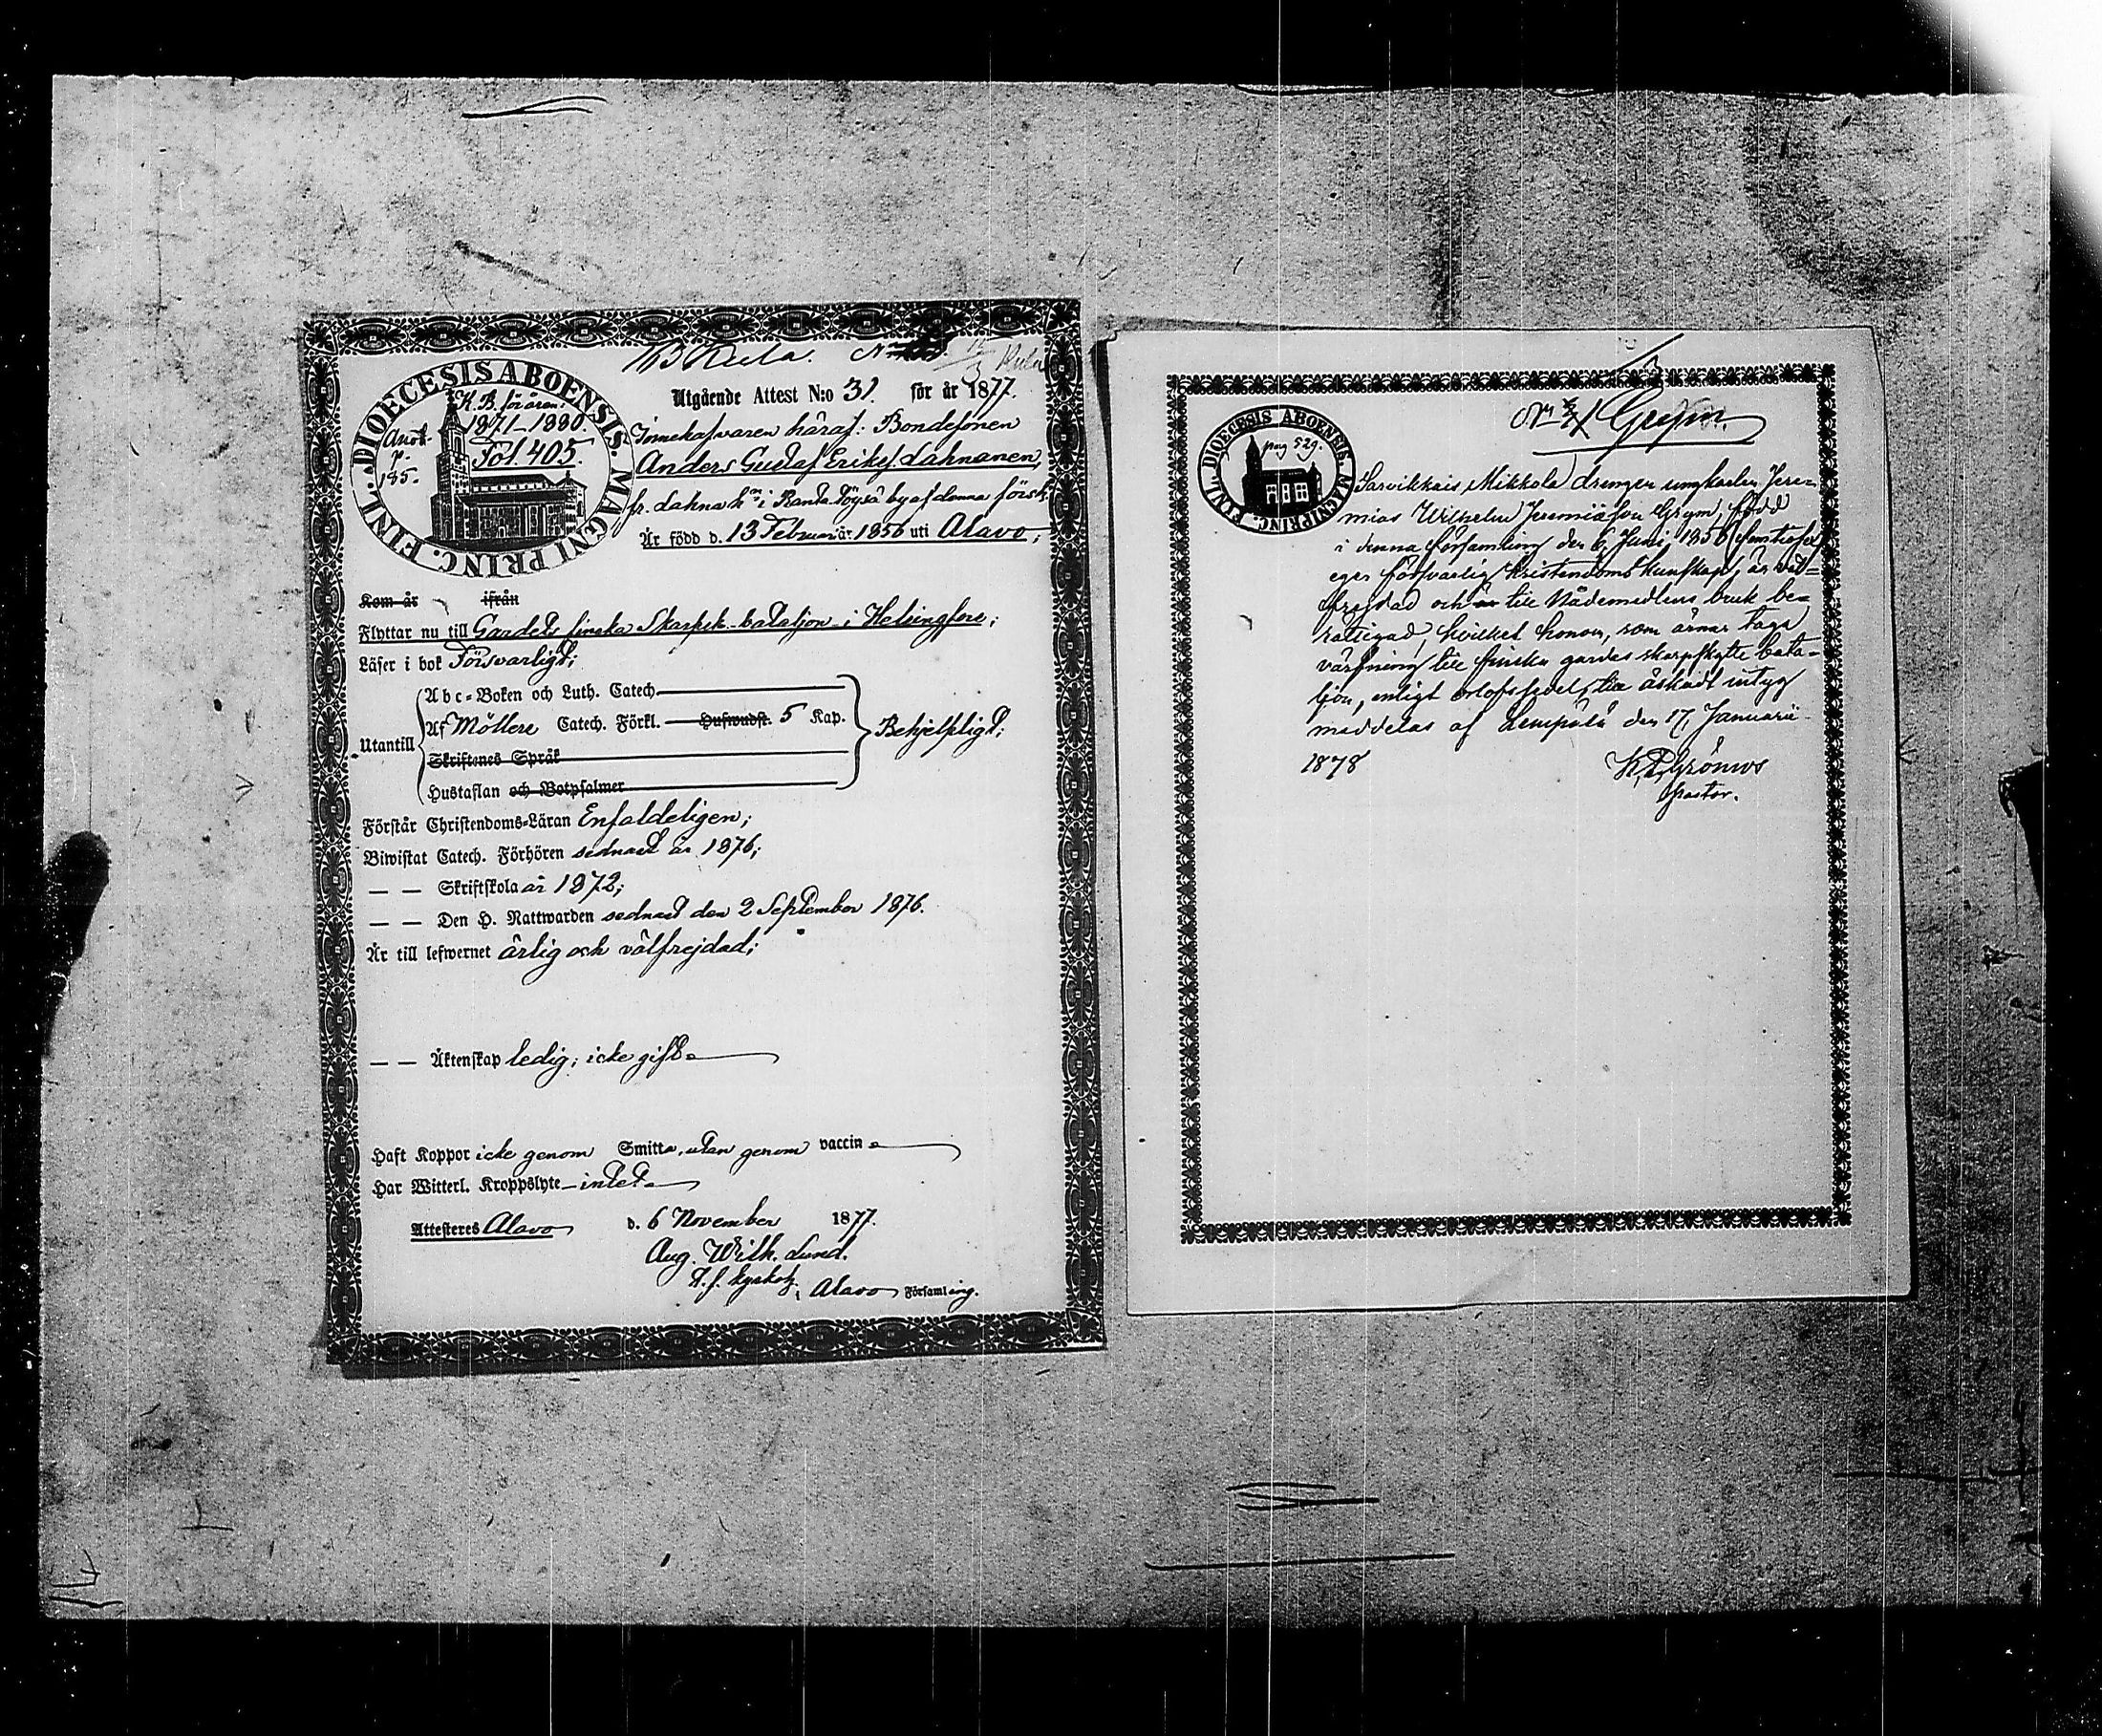 DIOECESIS ABOENSIS. MAGNI PRINC. FINL.
K. B. för åren
1871-1880.
Fol. 405.
Anot.
p.
185.
Rula.
Utgående Attest N:o 31. för år 1877.
Innehafvaren häraf: Bondesonen
Anders Gustaf Eriks. Lahnanen,
fr. Lahna hn i Ranta Töysä by af denna förs.
Är född d. 13 Februari år 1856 uti Alavo;
Kom år ifrån
Flyttar nu till Gardets finska Skarpsk. bataljon i Helsingfors;
Läser i bok Försvarligt;
Utantill
Abc-Boken och Luth. Catech.
Af Möllers Catech. Förkl. Hufwudst. 5 Kap.
Skriftenes Språk
Hustaflan och Botpsalmer
Behjelpligt;
Förstår Christendoms-Läran Enfaldeligen;
Biwistat Catech. Förhören sednast år 1876;
— — Skriftskola år 1872;
— — Den H. Nattwarden sednast den 2 September 1876.
Är till lefwernet ärlig och välfrejdad;
— — Äktenskap ledig; icke gift
Haft Koppor icke genom Smitta, utan genom vaccin
Har Witterl. Kroppslyte – intet
Attesteres Alavo d. 6 November 1877.
Aug. Wilh. Lund.
T. f. kyrkoh. i Alavo Församling.
DIOECESIS ABOENSIS. MAGNI PRINC. FINL.
pag 529.
Grym.
Sarvikkais Mikkola drengen ungkarlen Jere-
mias Wilhelm Jeremiasson Grym, född
i denna församling den 6 Juni 1856
eger försvarlig kristendoms kunskap, är väl-
frejdad och till Nådemedlens bruk be-
rättigad, hvilket honom, som ärnar taga
värfning till finska gardes skarpskytte bata-
ljon, enligt orlofssedel, till äskadt intyg
meddelas af Lempälä den 17 Januarii
1878
Pastor.